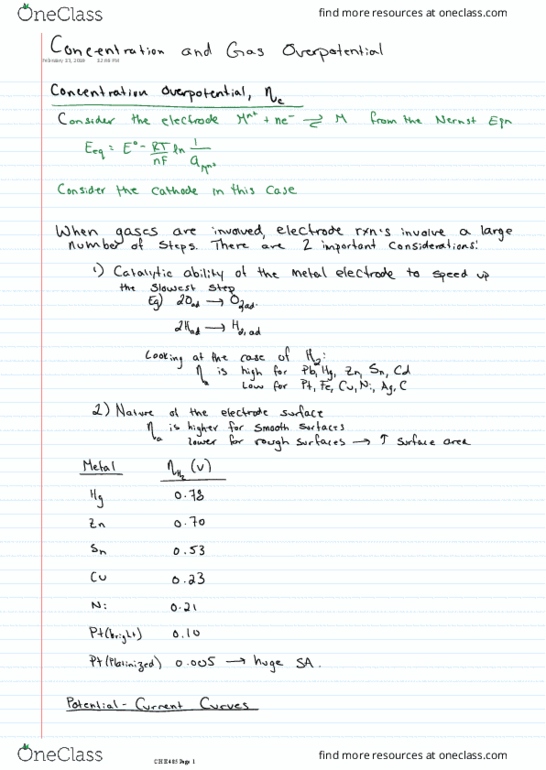 OneClass
find more resources at oneclass.com
Concentration and Gas Overpotential
February 23, 2016 12:48 PM
Concentration Overpotential, ηc
Consider the electrode Mⁿ⁺ + ne⁻ ⇌ M from the Nernst Eqn
Eeq = E° - RT/nF ln 1/aMⁿ⁺
Consider the cathode in this case
When gases are involved, electrode rxn's involve a large
number of steps. There are 2 important considerations:
1) Catalytic ability of the metal electrode to speed up
the slowest step
Eg) 2Oad → O2,ad.
2Had → H2,ad
Looking at the case of H2:
ηa is high for Pb, Hg, Zn, Sn, Cd
Low for Pt, Fe, Cu, Ni, Ag, C
2) Nature of the electrode surface
ηa is higher for smooth surfaces
lower for rough surfaces → ↑ surface area
Metal ηH2 (V)
Hg 0.78
Zn 0.70
Sn 0.53
Cu 0.23
Ni 0.21
Pt(bright) 0.10
Pt(Platinized) 0.005 → huge SA.
Potential - Current Curves
OneClass
Page 1
find more resources at oneclass.com